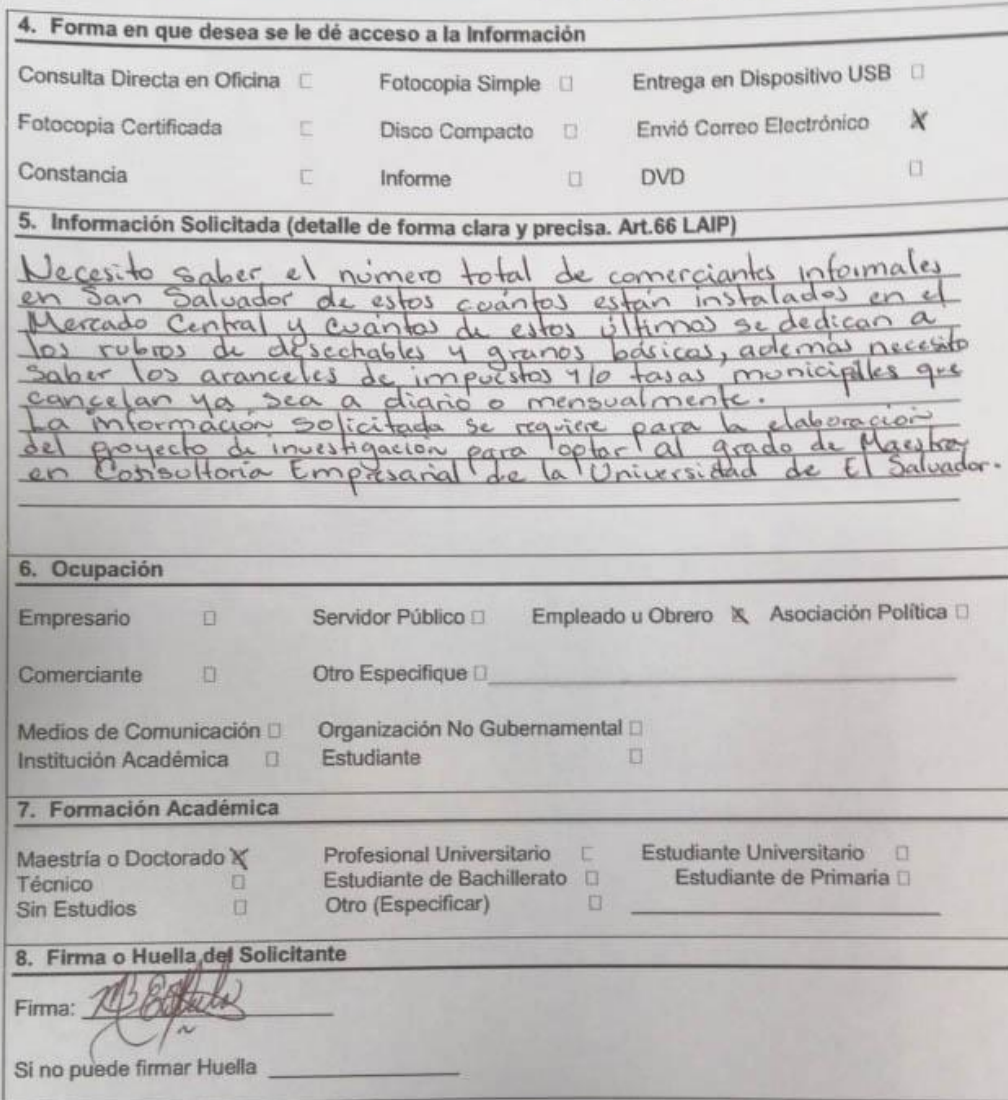 4. Forma en que desea se le dé acceso a la Información
Consulta Directa en Oficina □ Fotocopia Simple □ Entrega en Dispositivo USB □
Fotocopia Certificada □ Disco Compacto □ Envió Correo Electrónico X
Constancia □ Informe □ DVD □
5. Información Solicitada (detalle de forma clara y precisa. Art.66 LAIP)
Necesito saber el número total de comerciantes informales
en San Salvador de estos cuántos están instalados en el
Mercado Central y cuántos de estos últimos se dedican a
los rubros de desechables y granos básicos, además necesito
saber los aranceles de impuestos y/o tasas municipales que
cancelan ya sea a diario o mensualmente.
La información solicitada se requiere para la elaboración
del proyecto de investigación para optar al grado de Maestra
en Consultoría Empresarial de la Universidad de El Salvador.
6. Ocupación
Empresario □ Servidor Público □ Empleado u Obrero X Asociación Política □
Comerciante □ Otro Especifique □
Medios de Comunicación □ Organización No Gubernamental □
Institución Académica □ Estudiante □
7. Formación Académica
Maestría o Doctorado X Profesional Universitario □ Estudiante Universitario □
Técnico □ Estudiante de Bachillerato □ Estudiante de Primaria □
Sin Estudios □ Otro (Especificar) □
8. Firma o Huella del Solicitante
Firma:
Si no puede firmar Huella